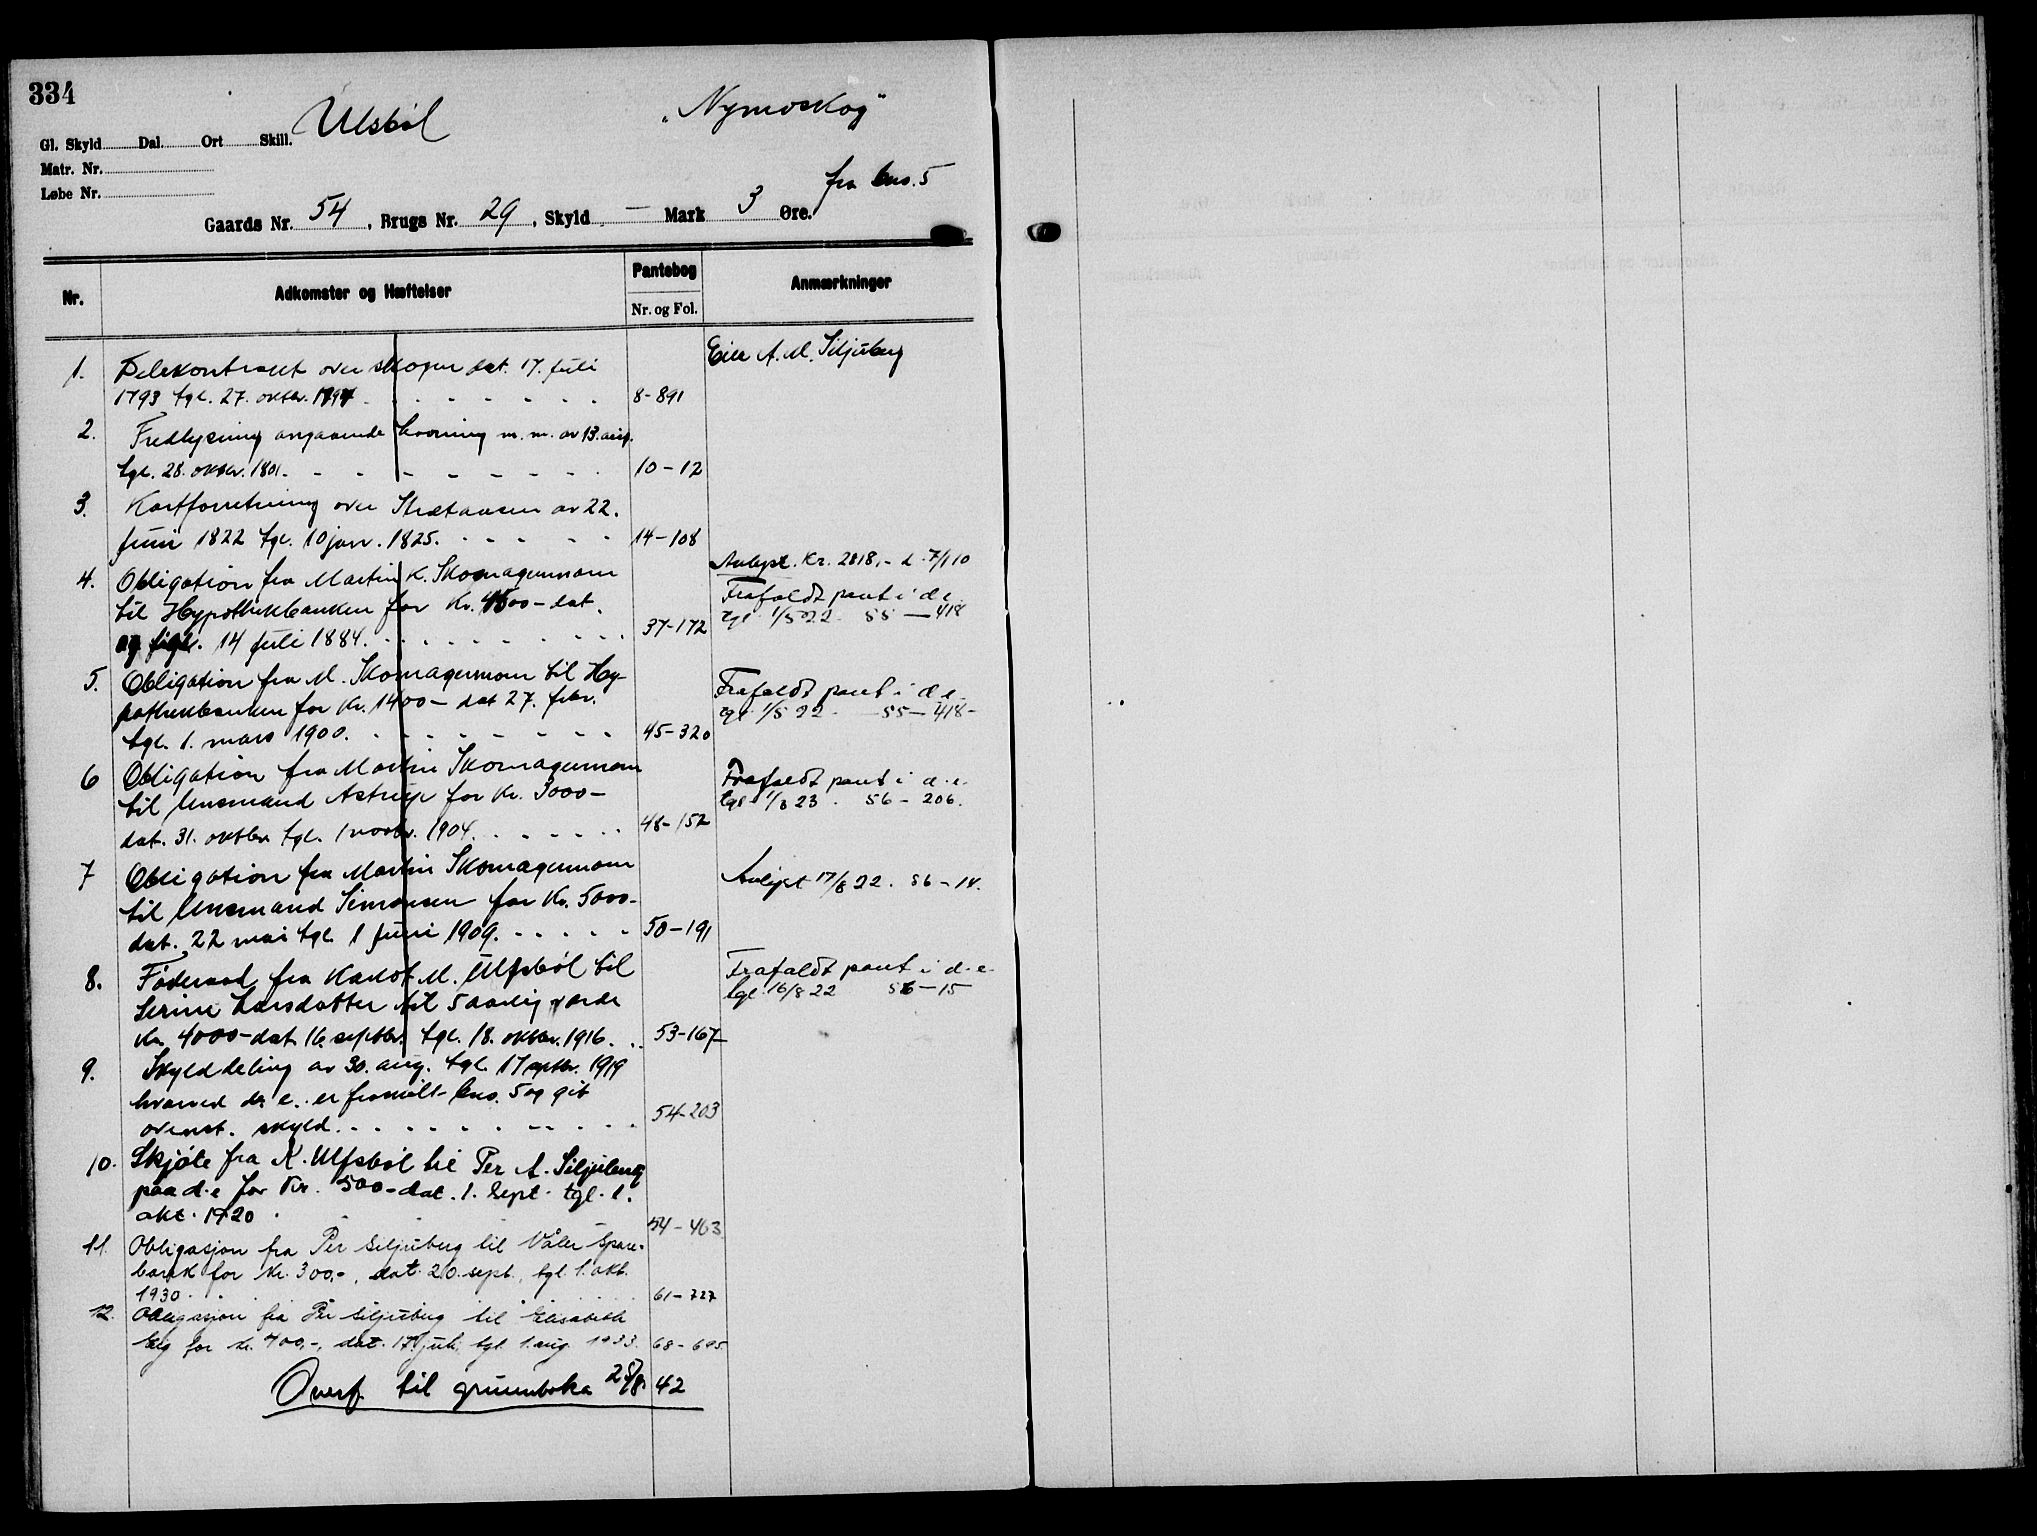 334
Ulsbøl
„Nymoskog“
Gl. Skyld Dal Ort Skill.
Matr. Nr.
Løbe Nr.
fra bno. 5
Gaards Nr. 54, Brugs Nr. 29, Skyld — Mark 3 Øre.
Nr. Adkomster og Hæftelser Pantebog Nr. og Fol. Anmærkninger
Eier A. M. Siljuberg
1. Delekontrakt over skogen dat. 17. juli
1793 tgl. 27. oktbr. 1794 8-891
2. Fredlysning angaaende havning m. m. av 13. aug.
tgl. 28. oktbr. 1801 10-12
3. Kartforretning over Strætaasen av 22.
juni 1822 tgl. 10 jan. 1825. 14-108
4. Obligation fra Martin K. Skomagermoen Avlyst. Kr. 2818,- d. 7/1 10
til Hypothekbanken for Kr. 4500- dat. Frafaldt pant i d. e.
og tgl. 14 juli 1884. 37-172 tgl. 1/5 22 55-418
5. Obligation fra M. Skomagermoen til Hy- Frafaldt pant i d. e.
pothekbanken for Kr. 1400- dat 27. febr. tgl. 1/5 22 55-418-
tgl. 1. mars 1900. 45-320
6 Obligation fra Martin Skomagermoen Frafaldt pant i d. e.
til Umt Astrup for Kr. 3000- tgl 1/8 23. 56-206.
dat. 31. oktbr. tgl. 1 novbr. 1904. 48-152
7 Obligation fra Martin Skomagermoen Avlyst 17/8 22. 56-14.
til Simonsen for Kr. 5000-
dat. 22 mai tgl. 1 juni 1909. 50-191
8. Føderaad fra Karl M. Ulfsbøl til Frafaldt pant i d. e.
Serine Larsdatter til 5 aarlig værde tgl. 16/8 22 56-15
Kr. 4000- dat. 16 septbr. tgl. 18. oktbr. 1916. 53-167
9. Skylddeling av 30. aug. tgl. 17 septbr. 1919
hvorved d. e. er fraskilt bno. 5 og git
ovenst. skyld. 54-203
10. Skjøte fra K. Ulfsbøl til Per A. Siljuberg
paa d. e for Kr. 500- dat. 1. Sept. tgl. 1.
okt. 1920 54-463
11. Obligasjon fra Per Siljuberg til Våler Spare-
bank for kr. 300,-, dat. 20. sept., tgl. 1. okt.
1930. 61-727
12. Obligasjon fra Per Siljuberg til Elisabeth
for kr. 400,-, dat. 17. juli, tgl. 1. aug. 1933. 68-695
Overf. til grunnboka 25/8 42